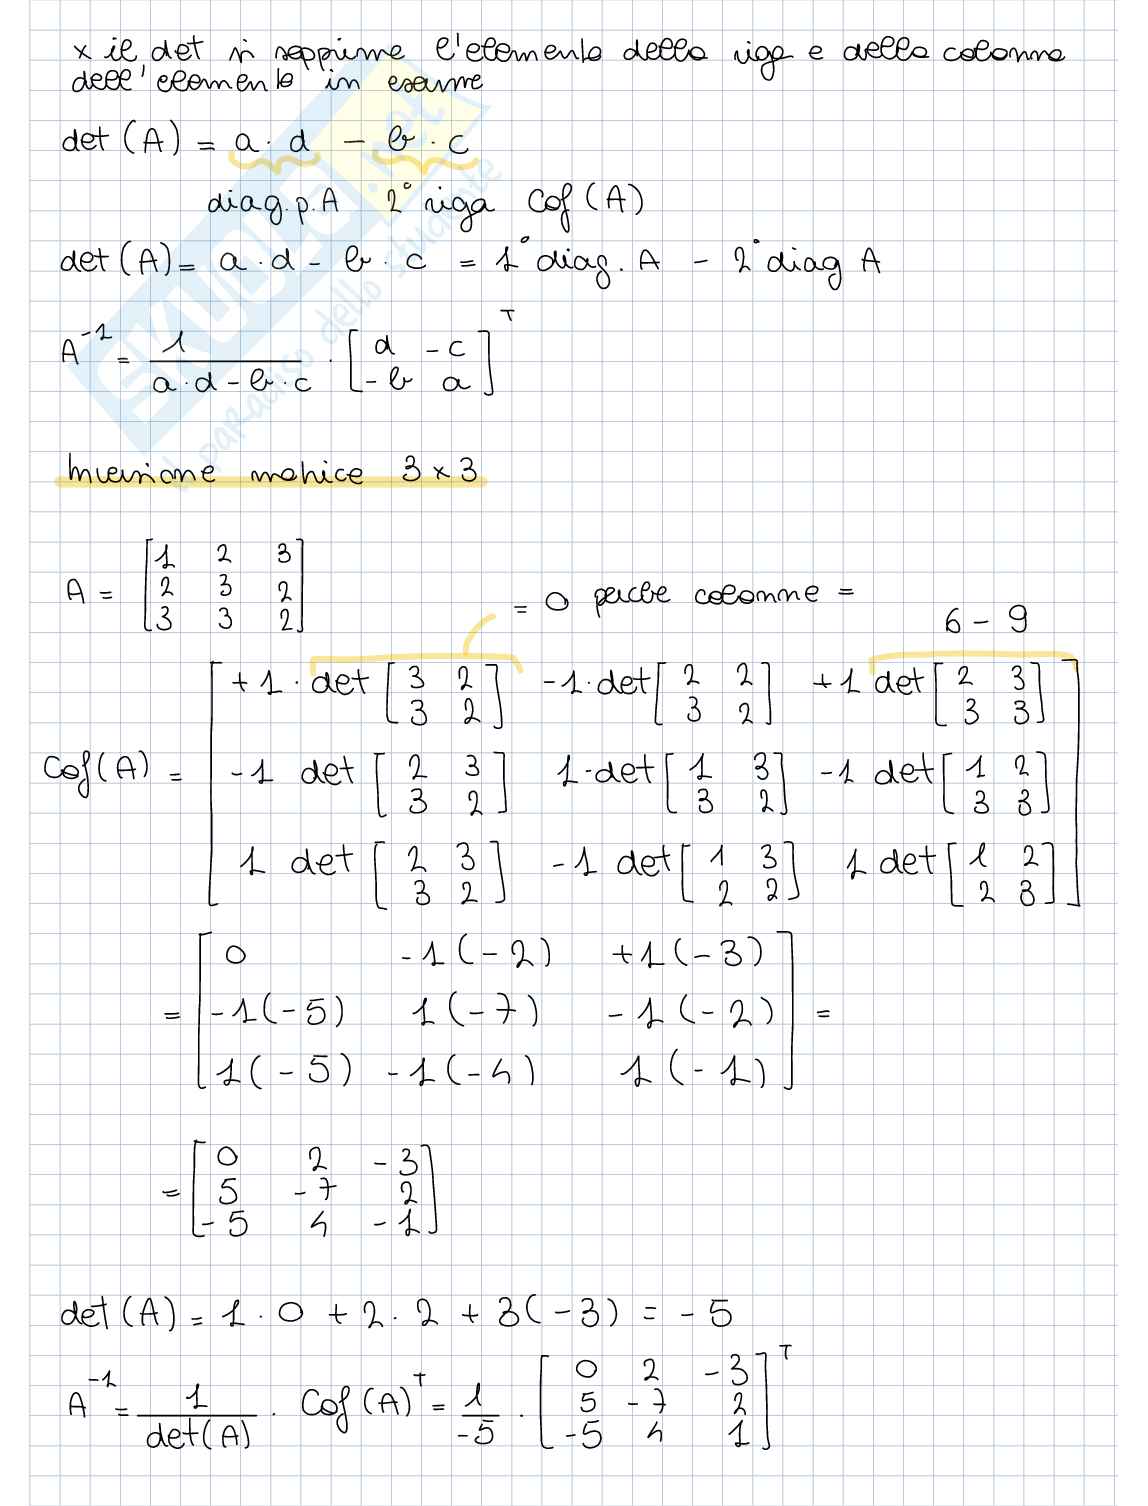 x il det si sopprime l'elemento della riga e della colonna
dell'elemento in esame
det (A) = a · d - b · c
diag. p. A 2° riga Cof (A)
det (A) = a · d - b · c = 1° diag. A - 2° diag A
A^-1 = 1 / (a · d - b · c) · [d -c; -b a]^T
Inversione matrice 3 x 3
A = [1 2 3; 2 3 2; 3 3 2]
= 0 perché colonne =
6 - 9
Cof (A) = [+1 · det [3 2; 3 2] -1 · det [2 2; 3 2] +1 det [2 3; 3 3];
-1 det [2 3; 3 2] 1 · det [1 3; 3 2] -1 det [1 2; 3 3];
1 det [2 3; 3 2] -1 det [1 3; 2 2] 1 det [1 2; 2 3]]
= [0 -1 (-2) +1 (-3);
-1 (-5) 1 (-7) -1 (-2);
1 (-5) -1 (-4) 1 (-1)] =
= [0 2 -3; 5 -7 2; -5 4 -1]
det (A) = 1 · 0 + 2 · 2 + 3 (-3) = -5
A^-1 = 1 / det (A) · Cof (A)^T = 1 / -5 · [0 2 -3; 5 -7 2; -5 4 1]^T
SKUOLA.net
il paradiso dello studente